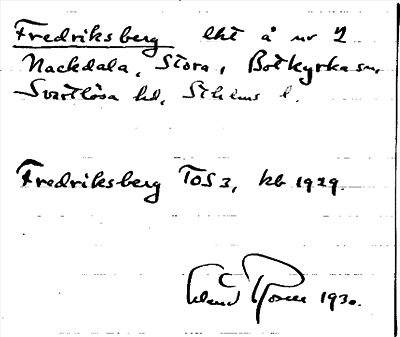 Fredriksberg lht å nr 2
Nackdala, Stora, Botkyrka sn,
Svartlösa hd, Sthlms l.
Fredriksberg TOS 3, kb 1929.
Erland Rosell 1930.